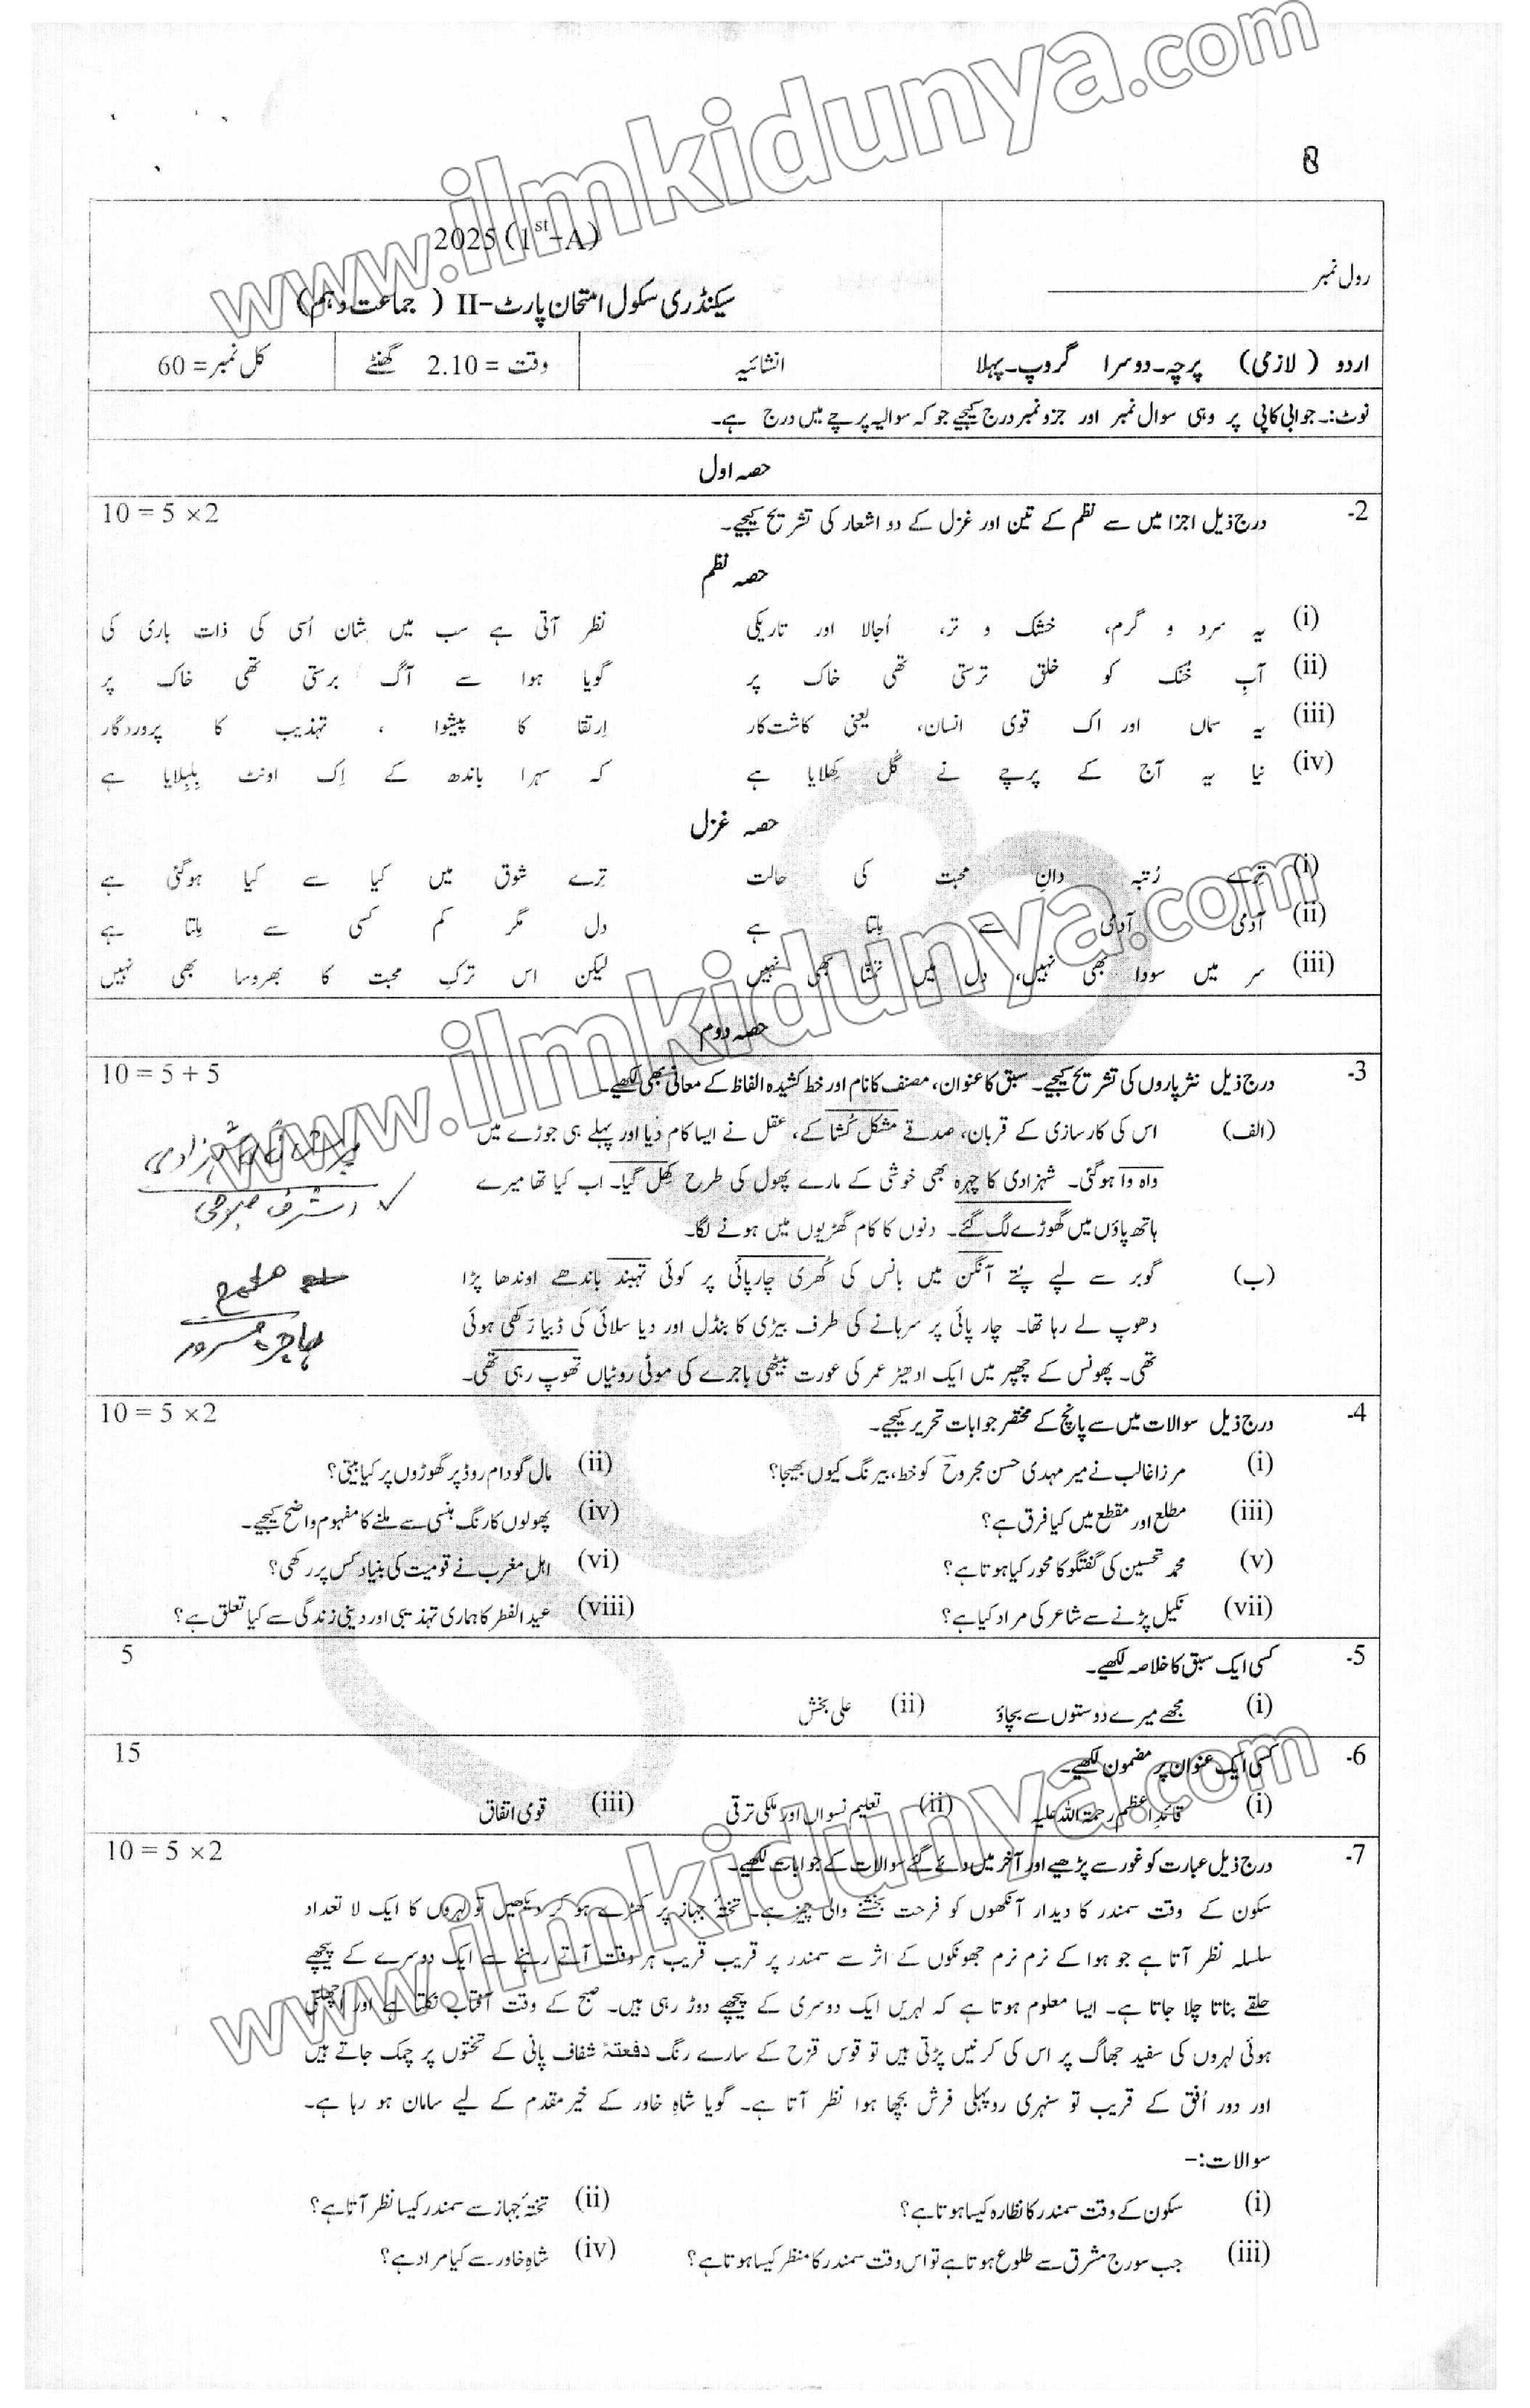 www.ilmkidunya.com
8
2025 (1st-A)
رول نمبر
سیکنڈری سکول امتحان پارٹ-II ( جماعت دہم)
اردو ( لازمی) پرچہ۔دوسرا گروپ۔پہلا
انشائیہ
وقت = 2.10 گھنٹے
کل نمبر = 60
نوٹ:۔ جوابی کاپی پر وہی سوال نمبر اور جزو نمبر درج کیجیے جو کہ سوالیہ پرچے میں درج ہے۔
حصہ اول
2- درج ذیل اجزا میں سے نظم کے تین اور غزل کے دو اشعار کی تشریح کیجیے۔ 10 = 5 ×2
حصہ نظم
(i) یہ سرد و گرم، خشک و تر، اُجالا اور تاریکی نظر آتی ہے سب میں شان اُسی کی ذات باری کی
(ii) آبِ خُنک کو خلق ترستی تھی خاک پر گویا ہوا سے آگ برستی تھی خاک پر
(iii) یہ سماں اور اک قوی انسان، یعنی کاشت کار اِرتقا کا پیشوا ، تہذیب کا پروردگار
(iv) نیا یہ آج کے پرچے نے گُل کِھلایا ہے کہ سہرا باندھ کے اِک اونٹ بِلبِلایا ہے
حصہ غزل
(i) تِرے رُتبہ دانِ محبت کی حالت تِرے شوق میں کیا سے کیا ہوگئی ہے
(ii) آدمی آدمی سے مِلتا ہے دل مگر کم کسی سے مِلتا ہے
(iii) سر میں سودا بھی نہیں، دل میں تمنّا بھی نہیں لیکن اس ترکِ محبت کا بھروسا بھی نہیں
حصہ دوم
3- درج ذیل نثر پاروں کی تشریح کیجیے۔ سبق کا عنوان، مصنف کا نام اور خط کشیدہ الفاظ کے معانی بھی لکھیے۔ 10 = 5 + 5
(الف) اس کی کارسازی کے قربان، صدقے مشکل کُشا کے، عقل نے ایسا کام دیا اور پہلے ہی جوڑے میں
واہ وا ہوگئی۔ شہزادی کا چہرہ بھی خوشی کے مارے پھول کی طرح کِھل گیا۔ اب کیا تھا میرے
ہاتھ پاؤں میں گھوڑے لگ گئے۔ دنوں کا کام گھڑیوں میں ہونے لگا۔
اشرف صبوحی
(ب) گوبر سے لپے پُتے آنگن میں بانس کی کُھری چارپائی پر کوئی تہبند باندھے اوندھا پڑا
دھوپ لے رہا تھا۔ چار پائی پر سرہانے کی طرف بیڑی کا بنڈل اور دیا سلائی کی ڈبیا رکھی ہوئی
تھی۔ پھونس کے چھپر میں ایک ادھیڑ عمر کی عورت بیٹھی باجرے کی موٹی روٹیاں تھوپ رہی تھی۔
ہاجرہ مسرور
4- درج ذیل سوالات میں سے پانچ کے مختصر جوابات تحریر کیجیے۔ 10 = 5 ×2
(i) مرزا غالب نے میر مہدی حسن مجروح کو خط، بیرنگ کیوں بھیجا؟ (ii) مال گودام روڈ پر گھوڑوں پر کیا بیتی؟
(iii) مطلع اور مقطع میں کیا فرق ہے؟ (iv) پھولوں کا رنگ ہنسی سے ملنے کا مفہوم واضح کیجیے۔
(v) محمد تحسین کی گفتگو کا محور کیا ہوتا ہے؟ (vi) اہل مغرب نے قومیت کی بنیاد کس پر رکھی؟
(vii) نکیل پڑنے سے شاعر کی مراد کیا ہے؟ (viii) عید الفطر کا ہماری تہذیبی اور دینی زندگی سے کیا تعلق ہے؟
5- کسی ایک سبق کا خلاصہ لکھیے۔ 5
(i) مجھے میرے دوستوں سے بچاؤ (ii) علی بخش
6- کسی ایک عنوان پر مضمون لکھیے۔ 15
(i) قائدِ اعظم رحمۃ اللہ علیہ (ii) تعلیم نسواں اور ملکی ترقی (iii) قومی اتفاق
7- درج ذیل عبارت کو غور سے پڑھیے اور آخر میں دئے گئے سوالات کے جوابات لکھیے۔ 10 = 5 ×2
سکون کے وقت سمندر کا دیدار آنکھوں کو فرحت بخشنے والی چیز ہے۔ تختۂ جہاز پر کھڑے ہو کر دیکھیں تو لہروں کا ایک لا تعداد
سلسلہ نظر آتا ہے جو ہوا کے نرم نرم جھونکوں کے اثر سے سمندر پر قریب قریب ہر وقت آتے رہنے سے ایک دوسرے کے پیچھے
حلقے بناتا چلا جاتا ہے۔ ایسا معلوم ہوتا ہے کہ لہریں ایک دوسری کے پیچھے دوڑ رہی ہیں۔ صبح کے وقت آفتاب نکلتا ہے اور اُچھلتی
ہوئی لہروں کی سفید جھاگ پر اس کی کرنیں پڑتی ہیں تو قوس قزح کے سارے رنگ دفعتہً شفاف پانی کے تختوں پر چمک جاتے ہیں
اور دور اُفق کے قریب تو سنہری روپہلی فرش بچھا ہوا نظر آتا ہے۔ گویا شاہِ خاور کے خیر مقدم کے لیے سامان ہو رہا ہے۔
سوالات:–
(i) سکون کے وقت سمندر کا نظارہ کیسا ہوتا ہے؟ (ii) تختۂ جہاز سے سمندر کیسا نظر آتا ہے؟
(iii) جب سورج مشرق سے طلوع ہوتا ہے تو اس وقت سمندر کا منظر کیسا ہوتا ہے؟ (iv) شاہِ خاور سے کیا مراد ہے؟
www.ilmkidunya.com
www.ilmkidunya.com